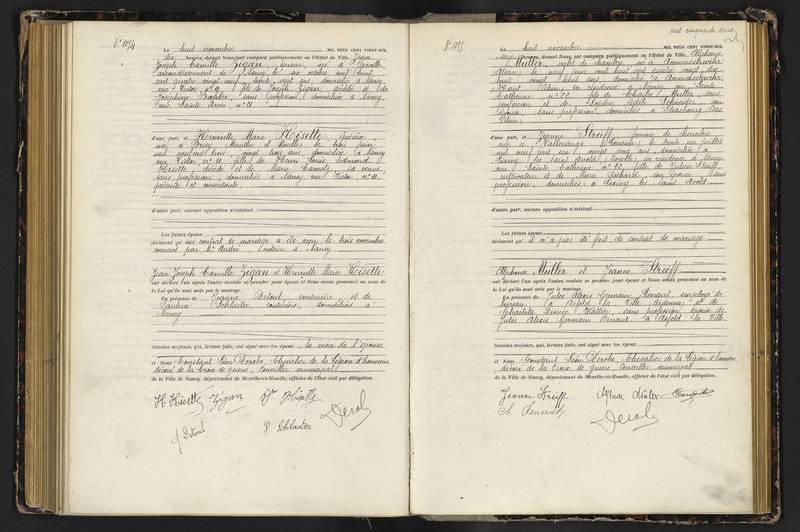 N° 1074
Le huit novembre MIL NEUF CENT VINGT-SIX,
dix heures, devant Nous ont comparu publiquement en l'Hôtel de Ville Jean
Joseph Camille Zigan, né à
arrondissement de Nancy, le six octobre mil huit
cent quatre vingt ans, domicilié à Nancy
rue n° fils de Joseph Zigan, décédé et de
Joséphine sans profession, domiciliée à Nancy,
rue Sainte Anne, n°
d'une part, et Henriette Marie Hisette
née à Briey, Meurthe et Moselle, le trois juin
mil neuf cent trois, ans, domiciliée à Nancy
rue n° 10, fille de Henri Louis Edmond
Hisette, décédé et de Marie sa veuve,
sans profession, domiciliée à Nancy rue n° 10
présente et consentante,
d'autre part; aucune opposition n'existant
Les futurs époux
déclarent qu'un contrat de mariage a été reçu le trois novembre
courant par Me André, notaire à Nancy
Jean Joseph Camille Zigan et Henriette Marie Hisette
ont déclaré l'un après l'autre vouloir se prendre pour époux et Nous avons prononcé au nom de
la Loi qu'ils sont unis par le mariage.
En présence de Jeanne Detoul, couturière et de
Pauline Schlaster, couturière, domiciliées à
Nancy
témoins majeurs, qui, lecture faite, ont signé avec les époux, la mère de l'épouse
et Nous Constant Léon Derobe, Chevalier de la Légion d'honneur
décoré de la Croix de guerre, Conseiller municipal
de la Ville de Nancy, département de Meurthe-et-Moselle, officier de l'état civil par délégation.
H Hisette Zigan Hisette
Derobe
J Detoul P. Schlaster
cent cinquante deux
N° 1075
Le huit novembre MIL NEUF CENT VINGT-SIX,
heures, devant Nous, ont comparu publiquement en l'Hôtel de Ville Alphonse
Müller, valet de chambre, né à Ammerschwihr
Alsace, le neuf juin mil huit cent quatre vingt dix
huit, vingt huit ans, domicilié à Ammerschwihr
Haut Rhin, en résidence à Nancy rue Sainte
Catherine n° 22, fils de Charles Müller, sans
profession et de Adèle Schneider, son
épouse, sans profession, domiciliés à Strasbourg Bas
Rhin,
d'une part, et Jeanne Streiff, femme de chambre
née à Vallerange Lorraine, le trente un juillet
mil neuf cent un, vingt cinq ans, domiciliée à
Lixing les Saint Avold Moselle, en résidence à Nancy
rue Sainte Catherine n° 22, fille de Streiff
cultivateur et de Marie Richard, son épouse, sans
profession, domiciliés à Lixing les Saint Avold
d'autre part; aucune opposition n'existant
Les futurs époux
déclarent qu'il n'a pas été fait de contrat de mariage
Alphonse Müller et Jeanne Streiff
ont déclaré l'un après l'autre vouloir se prendre pour époux et Nous avons prononcé au nom de
la Loi qu'ils sont unis par le mariage.
En présence de Jules Alexis Germain Renaut, employé de
bureau à Asfeld la Ville Ardennes, et de
Charlotte Désirée sans profession, épouse de
Jules Alexis Germain Renaut, à Asfeld la Ville
témoins majeurs, qui, lecture faite, ont signé avec les époux
et Nous Constant Léon Derobe, Chevalier de la Légion d'honneur
décoré de la Croix de guerre, Conseiller municipal
de la Ville de Nancy, département de Meurthe-et-Moselle, officier de l'état civil par délégation.
Jeanne Streiff Alphonse Müller
Derobe